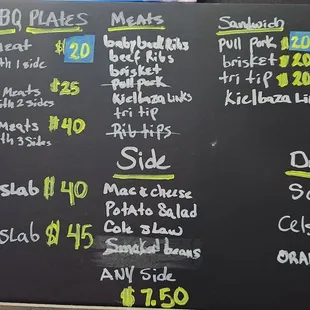 BQ PLATES
eat $20
th 1 side
Meats $25
th 2 sides
Meats $40
h 3 Sides
slab $40
slab $45
MEATS
babybeef Ribs
beef Ribs
brisket
Pull pork
Kielbaza Links
tri tip
Rib tips
Side
Mac & cheese
Potato Salad
Cole slaw
Smoked beans
ANY Side
$7.50
Sandwich
Pull Pork $20
brisket $20
tri tip $20
Kielbaza Link
D
So
Cels
ORAN